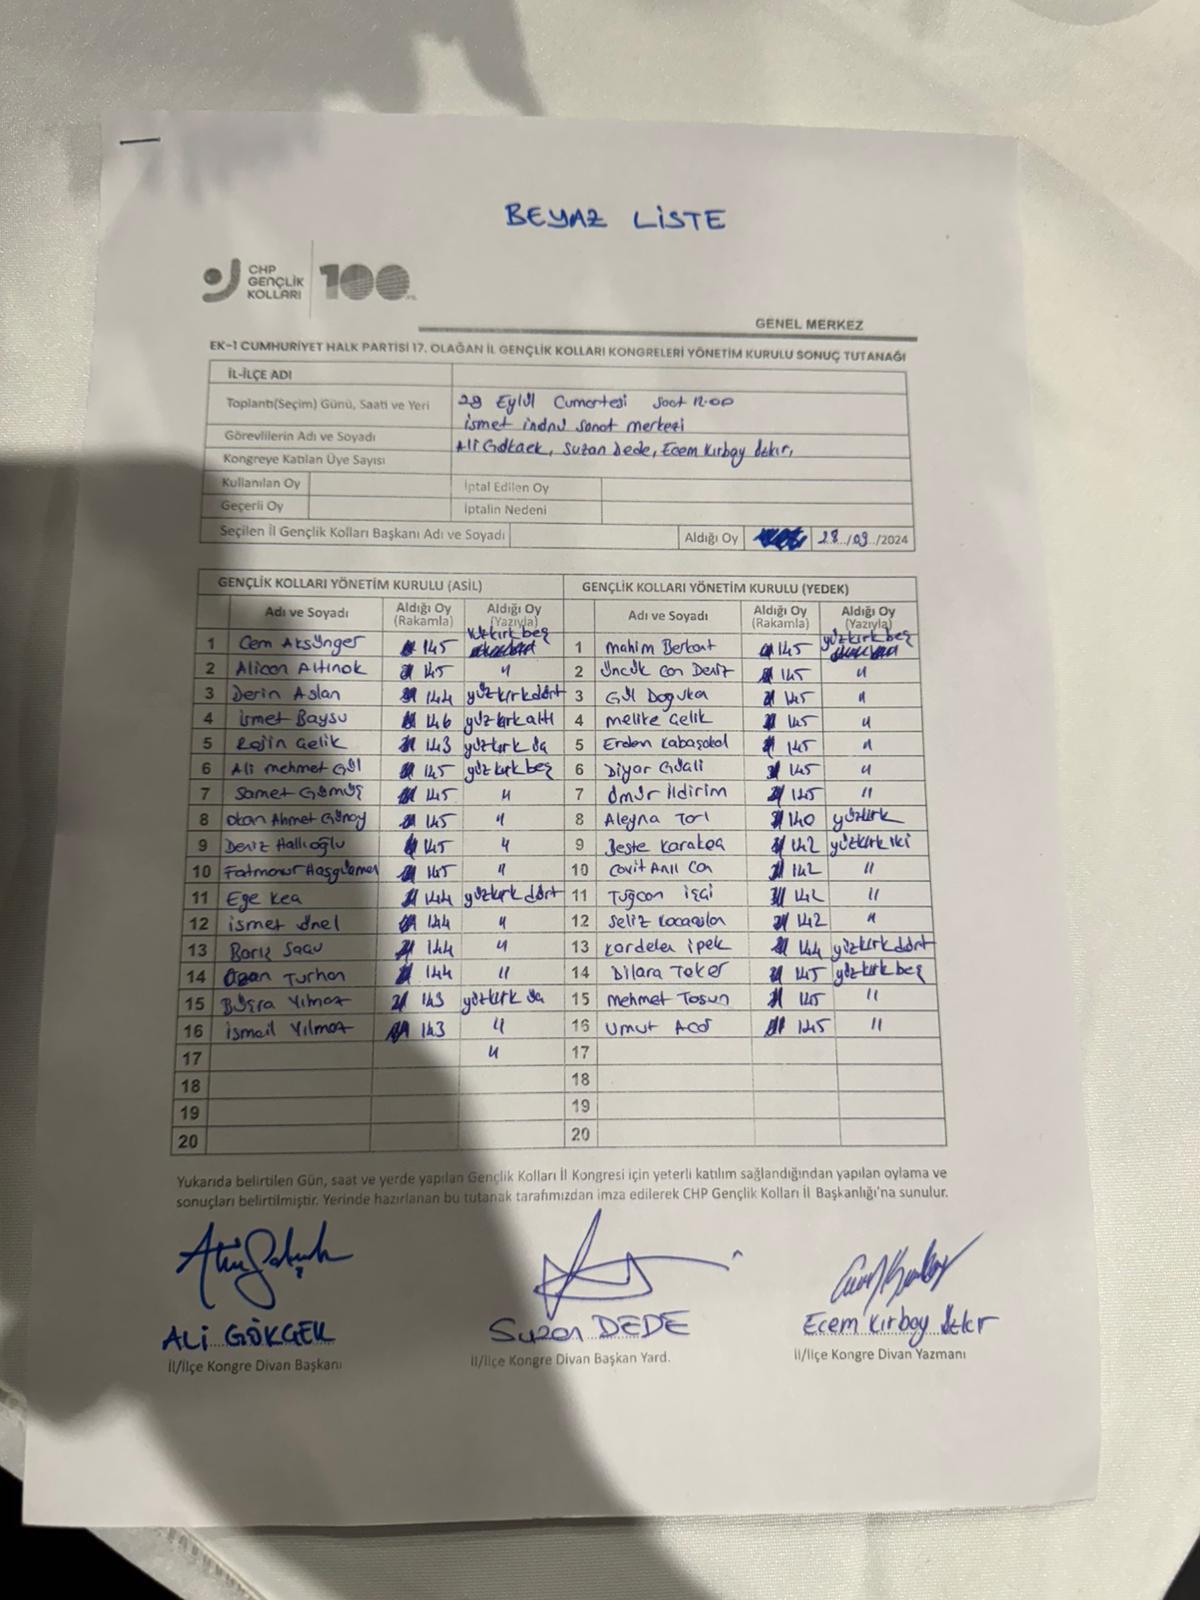 BEYAZ LİSTE
CHP
GENÇLİK
KOLLARI
100
GENEL MERKEZ
EK-1 CUMHURİYET HALK PARTİSİ 17. OLAĞAN İL GENÇLİK KOLLARI KONGRELERİ YÖNETİM KURULU SONUÇ TUTANAĞI
İL-İLÇE ADI
Toplantı(Seçim) Günü, Saati ve Yeri 28 Eylül Cumartesi saat 12.00
ismet inönü sanat merkezi
Görevlilerin Adı ve Soyadı Ali Gökçek, Suzan Dede, Ecem Kırbay
Kongreye Katılan Üye Sayısı
Kullanılan Oy İptal Edilen Oy
Geçerli Oy İptalin Nedeni
Seçilen İl Gençlik Kolları Başkanı Adı ve Soyadı Aldığı Oy 28../09../2024
GENÇLİK KOLLARI YÖNETİM KURULU (ASİL) GENÇLİK KOLLARI YÖNETİM KURULU (YEDEK)
Adı ve Soyadı Aldığı Oy (Rakamla) Aldığı Oy (Yazıyla) Adı ve Soyadı Aldığı Oy (Rakamla) Aldığı Oy (Yazıyla)
1 Cem Aksünger 145 yüzkırk beş 1 Mahim Berkant 145 yüzkırk beş
2 Alican Altınok 145 " 2 Can Deniz 145 "
3 Derin Aslan 144 yüzkırkdört 3 Gül Doğuka 145 "
4 ismet Baysu 146 yüzkırkaltı 4 Melike Çelik 145 "
5 Rojin Çelik 143 yüzkırk üç 5 Erden Kabaşakal 145 "
6 Ali Mehmet Gül 145 yüzkırk beş 6 Diyar Güali 145 "
7 Samet Gümüş 145 " 7 Ömür İldirim 145 "
8 Okan Ahmet Günay 145 " 8 Aleyna Torl 140 yüzkırk
9 Deniz Hallıoğlu 145 " 9 Beste Karakoa 142 yüzkırk iki
10 145 " 10 Cavit Anıl Can 142 "
11 Ege Kea 144 yüzkırk dört 11 Tuğcan işçi 142 "
12 ismet ünel 144 " 12 Seliz 142 "
13 Barış 144 " 13 Kardelen ipek 144 yüzkırkdört
14 Ozan Turhan 144 " 14 Dilara Teker 145 yüzkırk beş
15 Büşra Yılmaz 143 yüzkırk üç 15 Mehmet Tosun 145 "
16 ismail Yılmaz 143 " 16 Umut Acar 145 "
17 " 17
18 18
19 19
20 20
Yukarıda belirtilen Gün, saat ve yerde yapılan Gençlik Kolları İl Kongresi için yeterli katılım sağlandığından yapılan oylama ve
sonuçları belirtilmiştir. Yerinde hazırlanan bu tutanak tarafımızdan imza edilerek CHP Gençlik Kolları İl Başkanlığı'na sunulur.
ALİ GÖKÇEK Suzan DEDE Ecem Kırbay
İl/İlçe Kongre Divan Başkanı İl/İlçe Kongre Divan Başkan Yard. İl/İlçe Kongre Divan Yazmanı